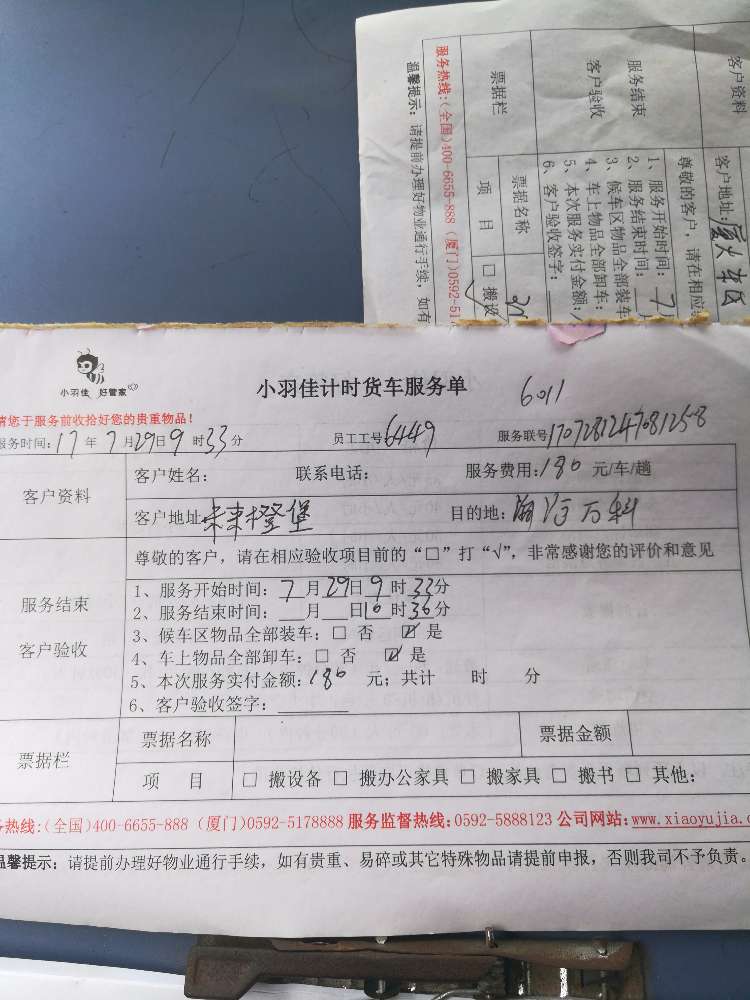 客户资料
客户地址:厦大
服务结束
客户验收
尊敬的客户，请在相应
1、服务开始时间：7
2、服务结束时间：
3、候车区物品全部装车：
4、车上物品全部卸车：
5、本次服务实付金额：
6、客户验收签字：
票据栏
票据名称
项 目 □ 搬设
服务热线:(全国)400-6655-888 (厦门)0592-517
温馨提示：请提前办理好物业通行手续，如有
小羽佳 好管家
小羽佳计时货车服务单
6011
请您于服务前收拾好您的贵重物品！
服务时间：17 年 7 月 29 日 9 时 33 分 员工工号 6449 服务联号 1707281247081258
客户资料
客户姓名： 联系电话： 服务费用：180 元/车/趟
客户地址 未来橙堡 目的地： 万科
尊敬的客户，请在相应验收项目前的“□”打“√”，非常感谢您的评价和意见
服务结束
客户验收
1、服务开始时间：7 月 29 日 9 时 33 分
2、服务结束时间：___月___日 10 时 36 分
3、候车区物品全部装车：□ 否 ☑ 是
4、车上物品全部卸车：□ 否 ☑ 是
5、本次服务实付金额：180 元；共计 时 分
6、客户验收签字：
票据栏
票据名称 票据金额
项 目 □ 搬设备 □ 搬办公家具 □ 搬家具 □ 搬书 □ 其他：
务热线:(全国)400-6655-888 (厦门)0592-5178888 服务监督热线：0592-5888123 公司网站：www.xiaoyujia.c
温馨提示：请提前办理好物业通行手续，如有贵重、易碎或其它特殊物品请提前申报，否则我司不予负责。